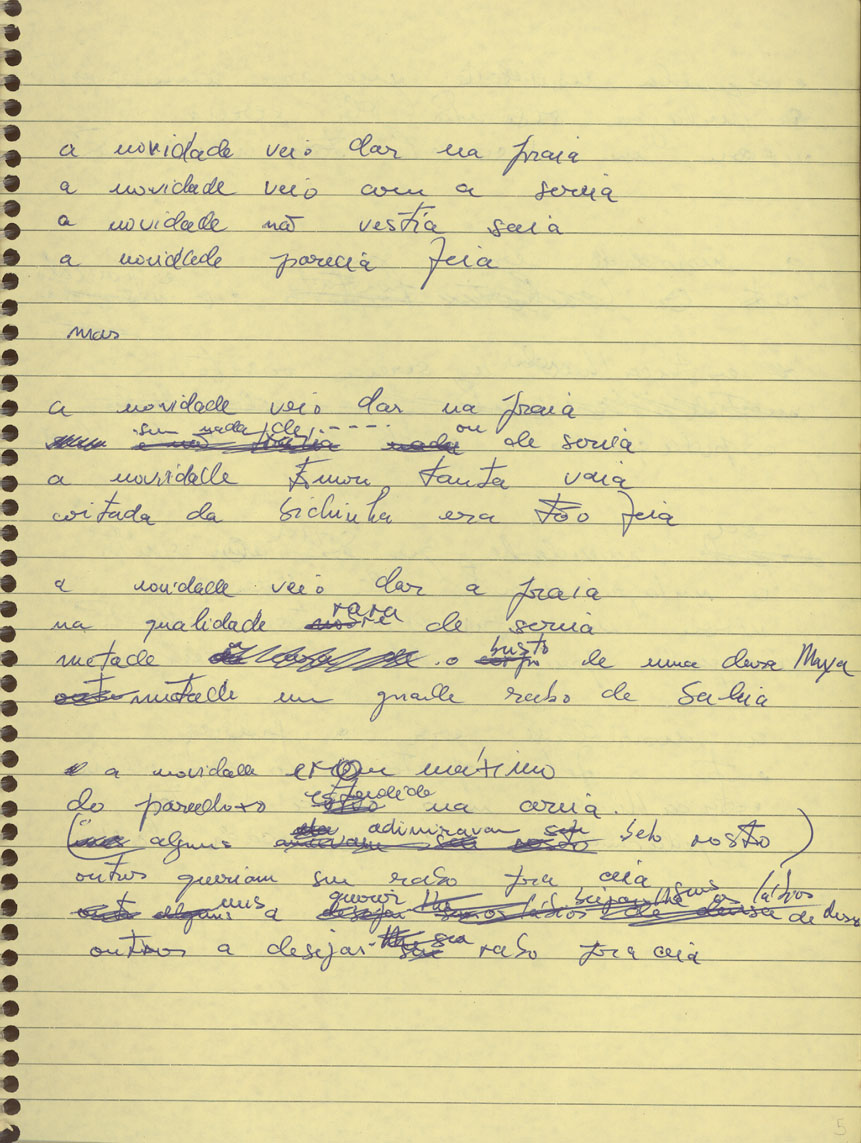 a novidade veio dar na praia
a novidade veio com a sereia
a novidade não vestia saia
a novidade parecia feia
mas
a novidade veio dar na praia
sem nada de ----- ou
de sereia
a novidade tomou tanta vaia
coitada da bichinha era tão feia
a novidade veio dar a praia
rara
na qualidade de sereia
busto
metade o de uma deusa Maya
metade um grande rabo de baleia
a novidade era o máximo
estendido
do paradoxo na areia.
admiravam seu
(alguns belo rosto)
outros queriam seu rabo pra ceia
uns a querer beijar seus lábios de deusa
outros a desejar seu rabo pra ceia
5